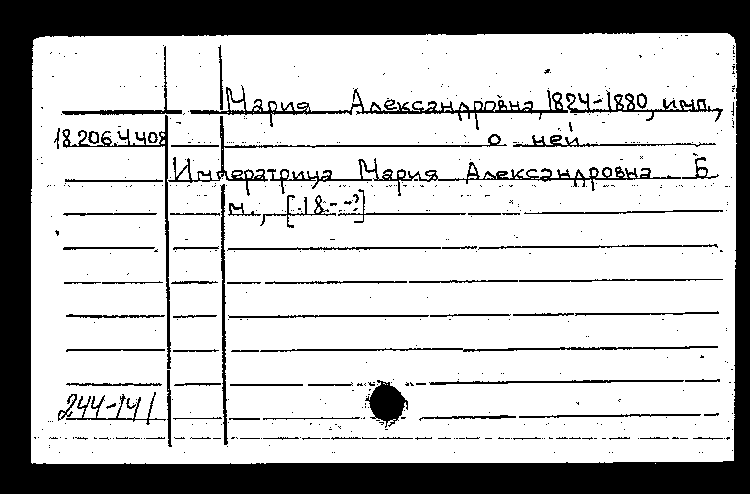 Мария Александровна, 1824-1880, имп.,
18.206.4.408 о ней
Императрица Мария Александровна. Б.
м., [18--?]
244-141